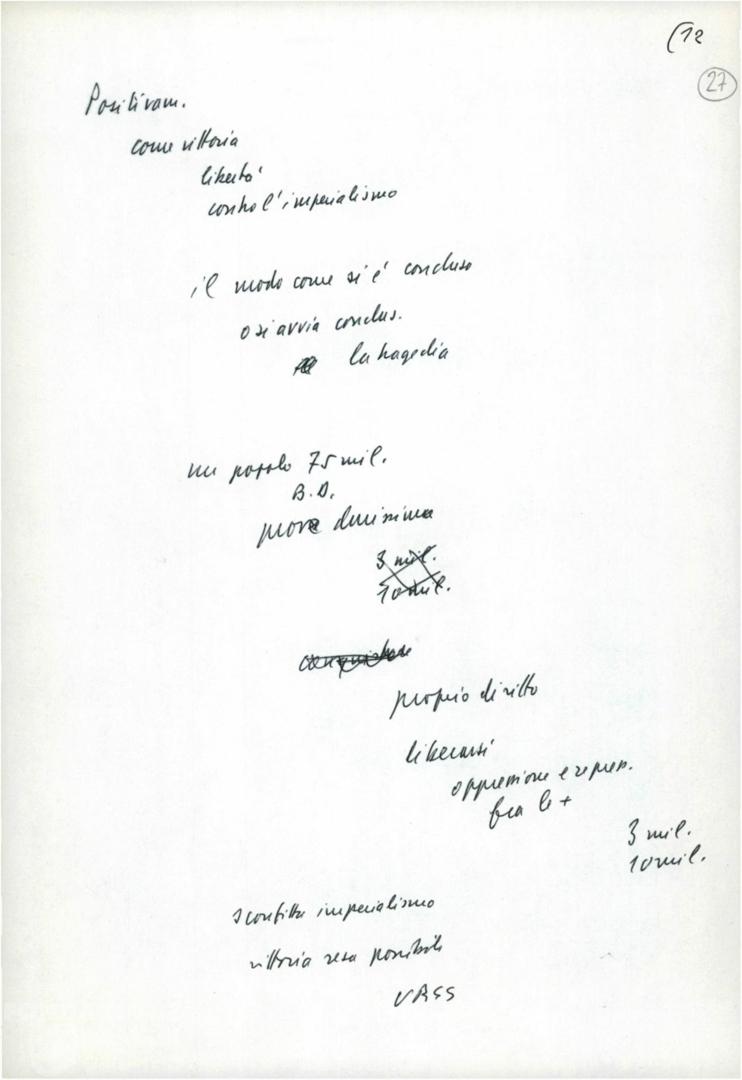 (12
27
Positivam.
come vittoria
libertà
contro l'imperialismo
il modo come si è concluso
o si avvia conclus.
la tragedia
un popolo 75 mil.
B.D.
prove durissime
3 mil.
10 mil.
conquistare
proprio diritto
liberarsi
oppressione e repress.
fra le +
3 mil.
10 mil.
sconfitta imperialismo
vittoria resa possibile
URSS